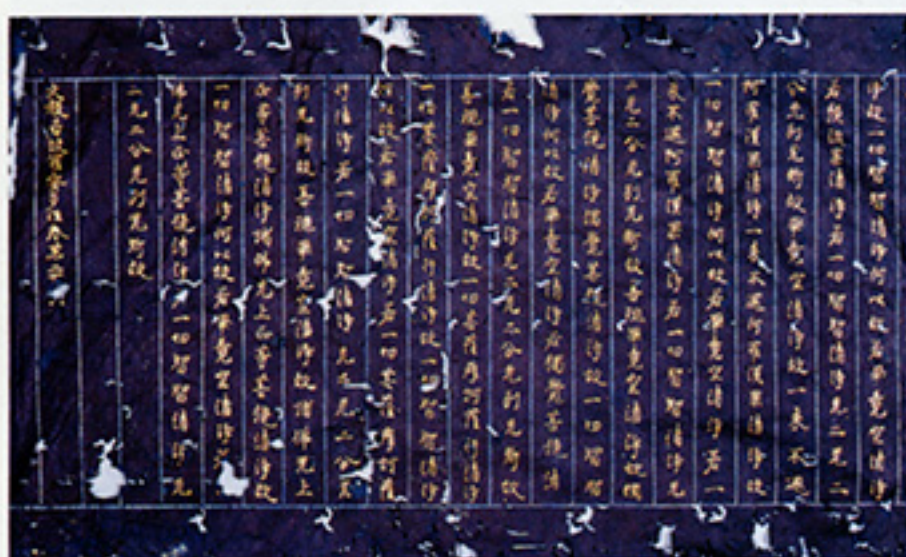 淨故一切智智清淨何以故若畢竟空清淨
若預流果清淨若一切智智清淨无二无二
分无別无斷故畢竟空清淨故一來不還
阿羅漢果清淨一來不還阿羅漢果清淨故
一切智智清淨何以故若畢竟空清淨若一
來不還阿羅漢果清淨若一切智智清淨无
二无二分无別无斷故善現畢竟空清淨故獨
覺菩提清淨獨覺菩提清淨故一切智智
清淨何以故若畢竟空清淨若獨覺菩提清
淨若一切智智清淨无二无二分无別无斷故
善現畢竟空清淨故一切菩薩摩訶薩行清淨
一切菩薩摩訶薩行清淨故一切智智清淨
何以故若畢竟空清淨若一切菩薩摩訶薩
行清淨若一切智智清淨无二无二分无
別无斷故善現畢竟空清淨故諸佛无上
正等菩提清淨諸佛无上正等菩提清淨故
一切智智清淨何以故若畢竟空清淨若
佛无上正等菩提清淨若一切智智清淨无
二无二分无別无斷故
大般若波羅蜜多經卷第